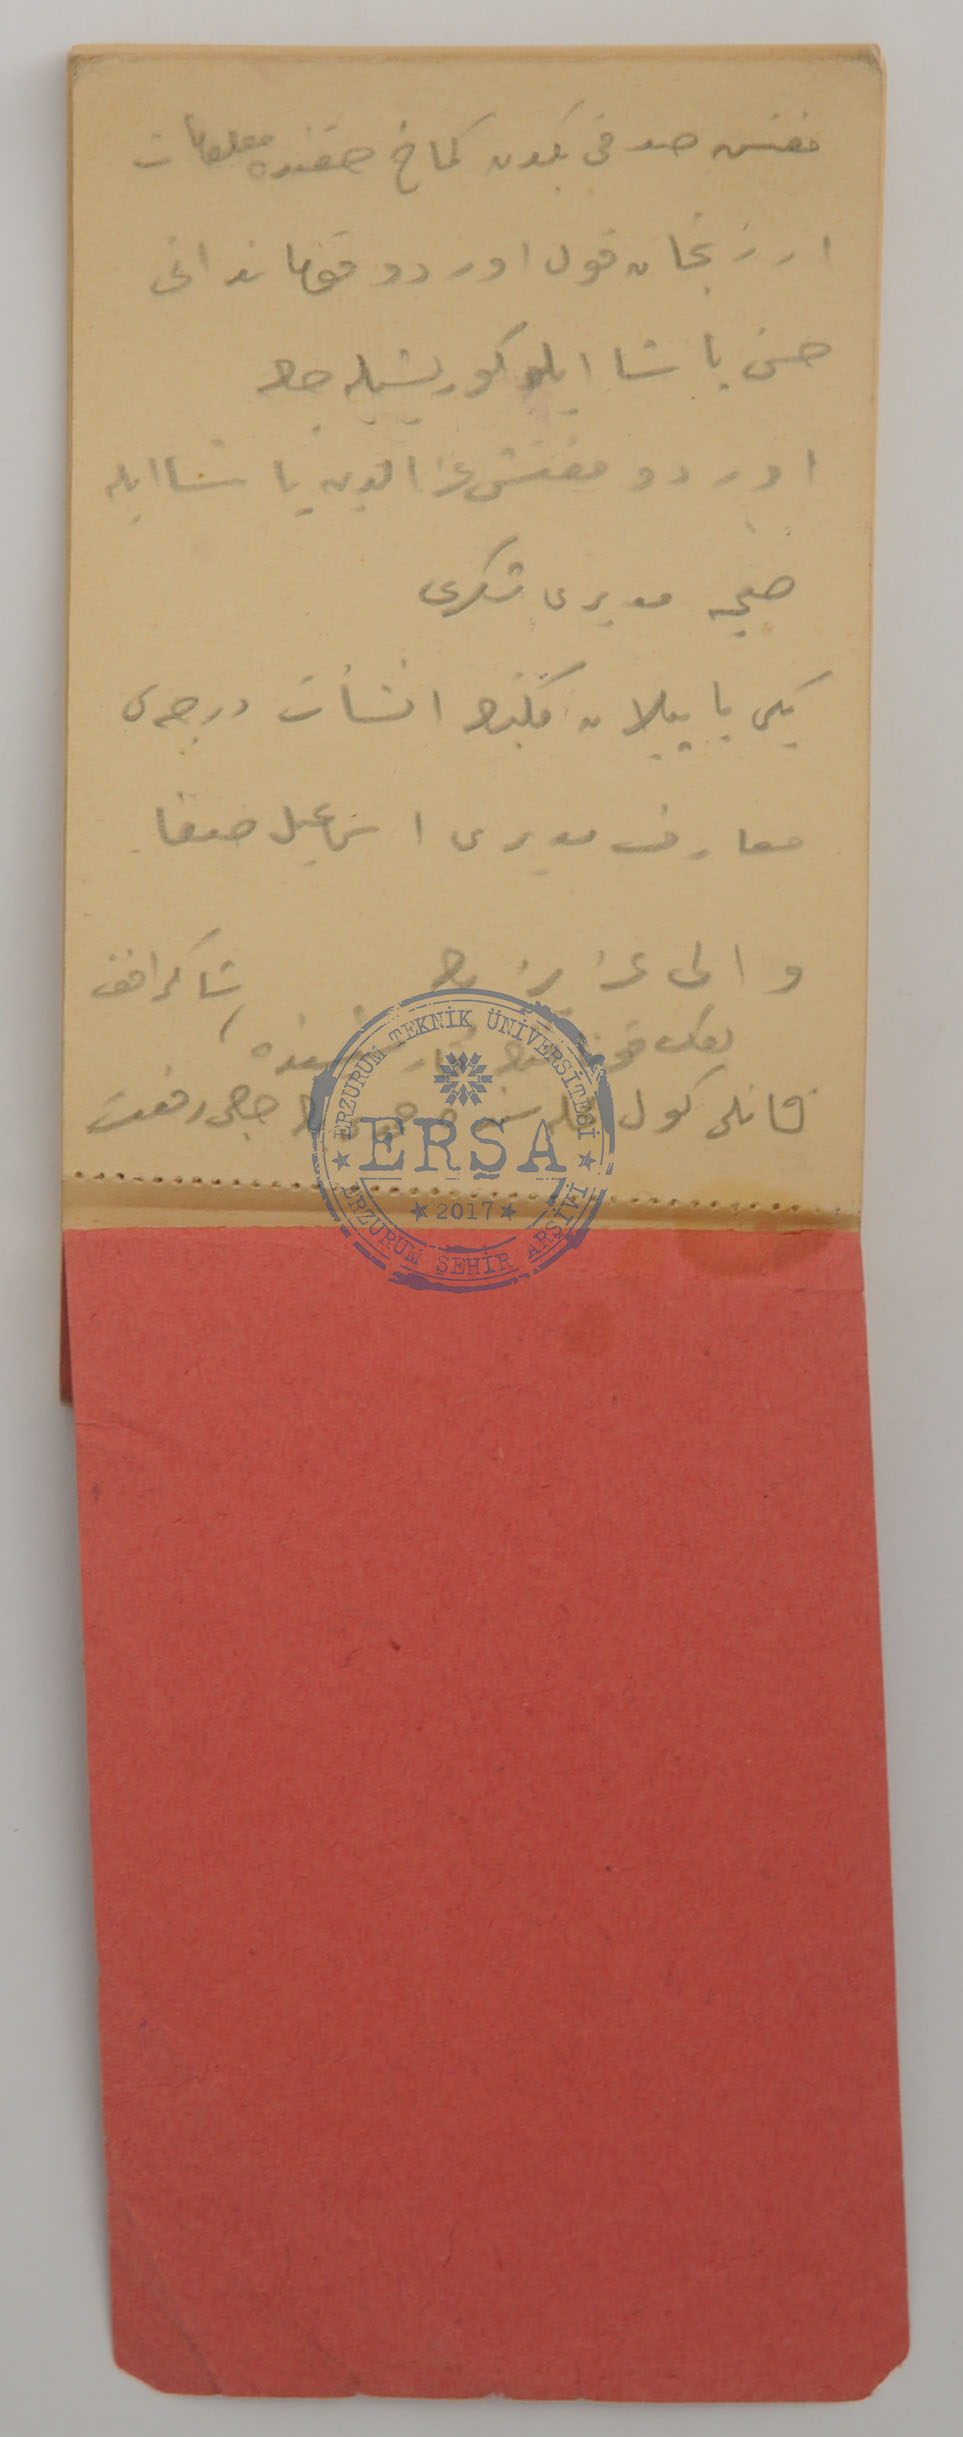 مفتش صدقی بكدن كماخ حقنده معلومات
ارزنجان قول اوردو قوماندانی
حسن پاشا ايله كوريشيله جك
اوردو مفتشی عزالدين پاشا ايله
صحيه مديری شكری
يكی ياپيلان مكتبك انشاآت درجه‌سی
معارف مديری اسماعيل صفا
والی عزيز بك شاكر افند
قانلی كول حاجی رفعت
ERZURUM TEKNİK ÜNİVERSİTESİ
ERŞA
2017
ERZURUM ŞEHİR ARŞİVİ